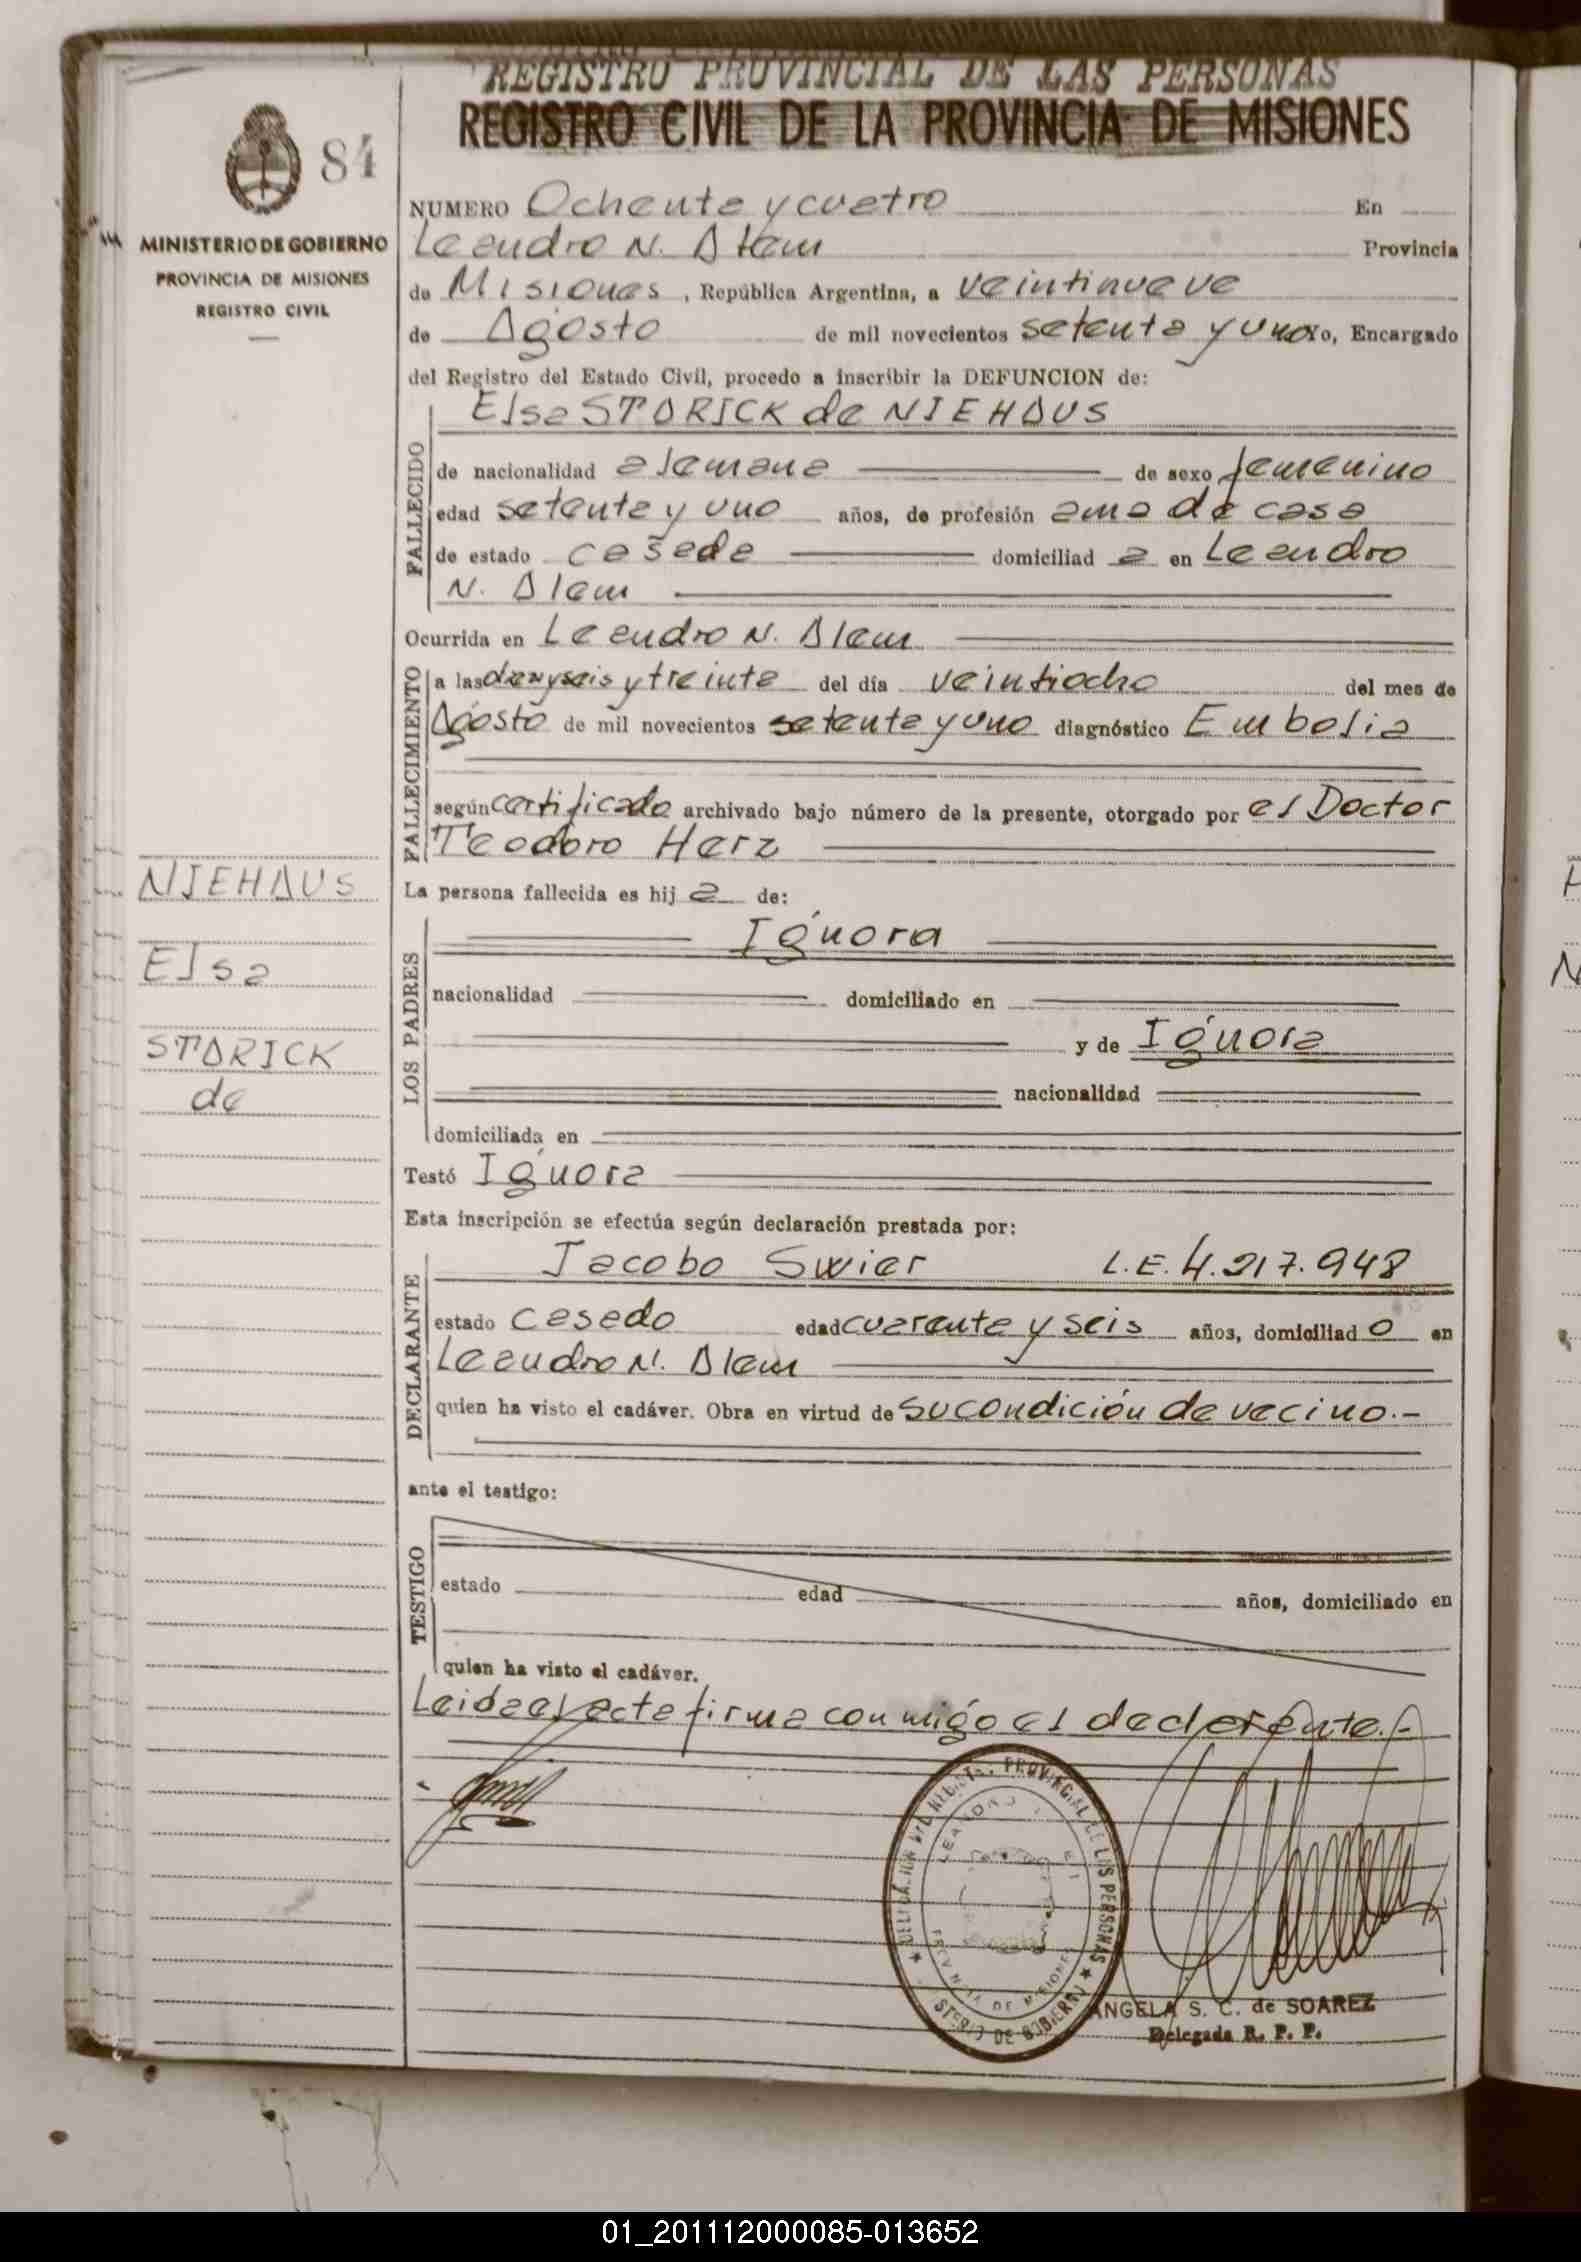 REGISTRO PROVINCIAL DE LAS PERSONAS
REGISTRO CIVIL DE LA PROVINCIA DE MISIONES
84
MINISTERIO DE GOBIERNO
PROVINCIA DE MISIONES
REGISTRO CIVIL
NUMERO Ochenta y cuatro En
Leandro N. Alem Provincia
de Misiones, República Argentina, a veintinueve
de Agosto de mil novecientos setenta y uno Yo, Encargado
del Registro del Estado Civil, procedo a inscribir la DEFUNCION de:
Elsa STARICK de NIEHAUS
FALLECIDO
de nacionalidad alemana de sexo femenino
edad setenta y uno años, de profesión ama de casa
de estado casada domiciliad a en Leandro
N. Alem
Ocurrida en Leandro N. Alem
FALLECIMIENTO
a las diez y seis y treinta del día veintiocho del mes de
Agosto de mil novecientos setenta y uno diagnóstico Embolia
según certificado archivado bajo número de la presente, otorgado por el Doctor
Teodoro Herz
NIEHAUS
Elsa
STARICK
de
La persona fallecida es hij a de:
LOS PADRES
Ignora
nacionalidad domiciliado en
y de Ignora
nacionalidad
domiciliada en
Testó Ignora
Esta inscripción se efectúa según declaración prestada por:
DECLARANTE
Jacobo Swier L.E. 4.217.948
estado casado edad cuarenta y seis años, domiciliad o en
Leandro N. Alem
quien ha visto el cadáver. Obra en virtud de su condición de vecino.-
ante el testigo:
TESTIGO
estado edad años, domiciliado en
quien ha visto el cadáver.
Leida el acta firma conmigo el declarante.-
DELEGACION DEL REGIST. PROVINCIAL DE LAS PERSONAS
LEANDRO
PROVINCIA DE MISIONES
STERIO DE GOBIERNO
ANGELA S. C. de SOAREZ
Delegada R. P. P.
01_201112000085-013652